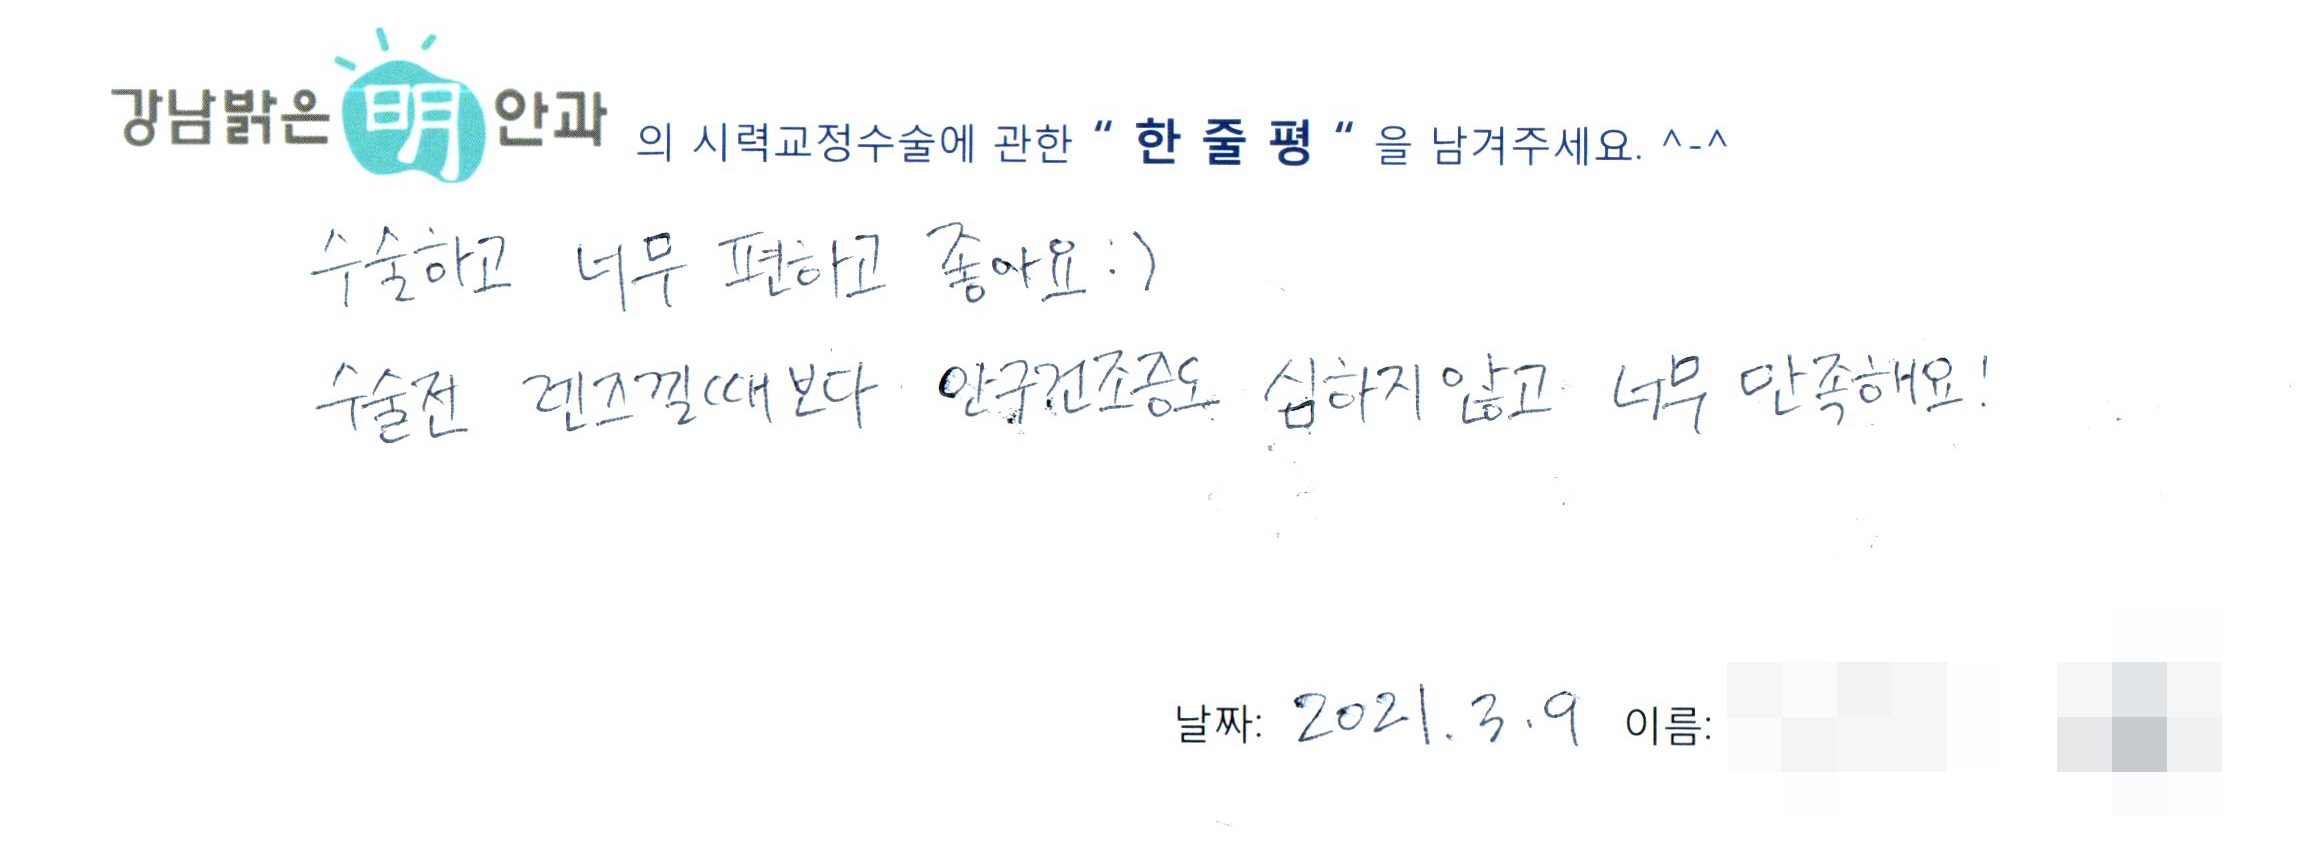 강남밝은 明 안과 의 시력교정수술에 관한 “ 한 줄 평 “ 을 남겨주세요. ^-^
수술하고 너무 편하고 좋아요:)
수술전 렌즈낄때보다 안구건조증도 심하지않고 너무 만족해요!
날짜: 2021.3.9 이름: